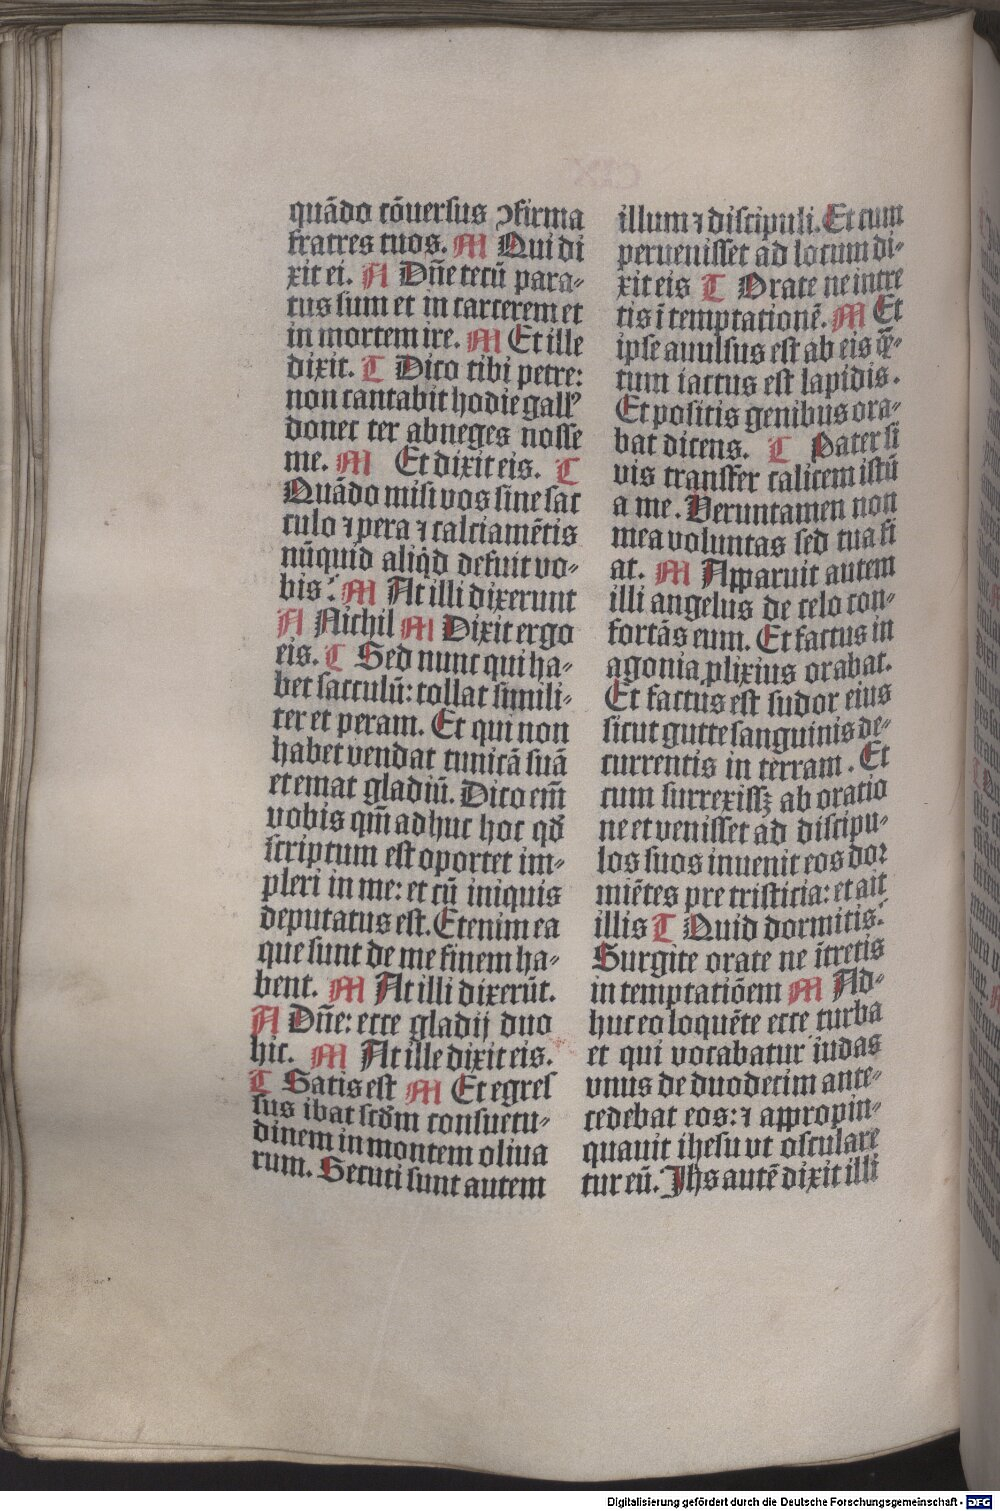 quãdo cõuersus ꝯfirma
fratres tuos. M Qui di
xit ei. A Dñe tecũ para-
tus sum et in carcerem et
in mortem ire. M Et ille
dixit. T Dico tibi petre:
non cantabit hodie gallꝰ
donec ter abneges nosse
me. M Et dixit eis. T
Quãdo misi vos sine sac
culo ⁊ pera ⁊ calciamẽtis
nũquid aliqͥd defuit vo-
bis? M At illi dixerunt
A Nichil M Dixit ergo
eis. T Sed nunc qui ha-
bet sacculũ: tollat simili-
ter et peram. Et qui non
habet vendat tunicã suã
et emat gladiũ. Dico em̃
vobis qm̃ adhuc hoc qđ
scriptum est oportet im-
pleri in me: et cũ iniquis
deputatus est. Etenim ea
que sunt de me finem ha-
bent. M At illi dixerũt.
A Dñe: ecce gladij duo
hic. M At ille dixit eis.
T Satis est M Et egres
sus ibat scđm consuetu-
dinem in montem oliua
rum. Secuti sunt autem
illum ⁊ discipuli. Et cum
peruenisset ad locum di-
xit eis T Orate ne intre
tis ĩ temptationẽ. M Et
ipse auulsus est ab eis qͣ̃-
tum iactus est lapidis.
Et positis genibus ora-
bat dicens. T Pater si
vis transfer calicem istũ
a me. Veruntamen non
mea voluntas sed tua fi
at. M Apparuit autem
illi angelus de celo con-
fortãs eum. Et factus in
agonia ꝓlixius orabat.
Et factus est sudor eius
sicut gutte sanguinis de-
currentis in terram. Et
cum surrexissꝫ ab oratio
ne et venisset ad discipu-
los suos inuenit eos dor
miẽtes pre tristicia: et ait
illis T Quid dormitis?
Surgite orate ne ĩtretis
in temptatiõem M Ad-
huc eo loquẽte ecce turba
et qui vocabatur iudas
vnus de duodecim ante-
cedebat eos: ⁊ appropin-
quauit ihesu vt osculare
tur eũ. Jhs autẽ dixit illi
Digitalisierung gefördert durch die Deutsche Forschungsgemeinschaft - DFG